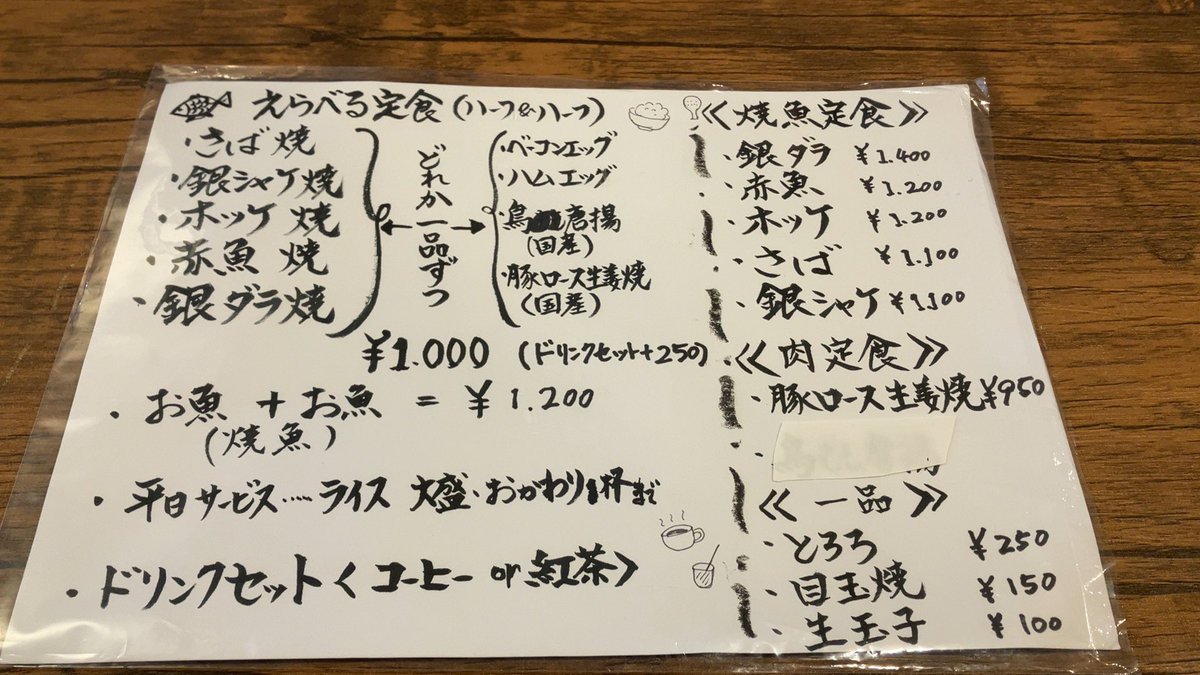 えらべる定食(ハーフ&ハーフ)
・さば焼
・銀シャケ焼
・ホッケ焼
・赤魚焼
・銀ダラ焼
どれか一品ずつ
・ベーコンエッグ
・ハムエッグ
・鳥唐揚
(国産)
・豚ロース生姜焼
(国産)
¥1.000 (ドリンクセット+250)
・お魚+お魚=¥1.200
(焼魚)
・平日サービス……ライス 大盛・おかわり杯まで
・ドリンクセット<コーヒー or 紅茶>
≪焼魚定食≫
・銀ダラ ¥1.400
・赤魚 ¥1.200
・ホッケ ¥1.200
・さば ¥1.100
・銀シャケ ¥1.100
≪肉定食≫
・豚ロース生姜焼 ¥950
≪一品≫
・とろろ ¥250
・目玉焼 ¥150
・生玉子 ¥100